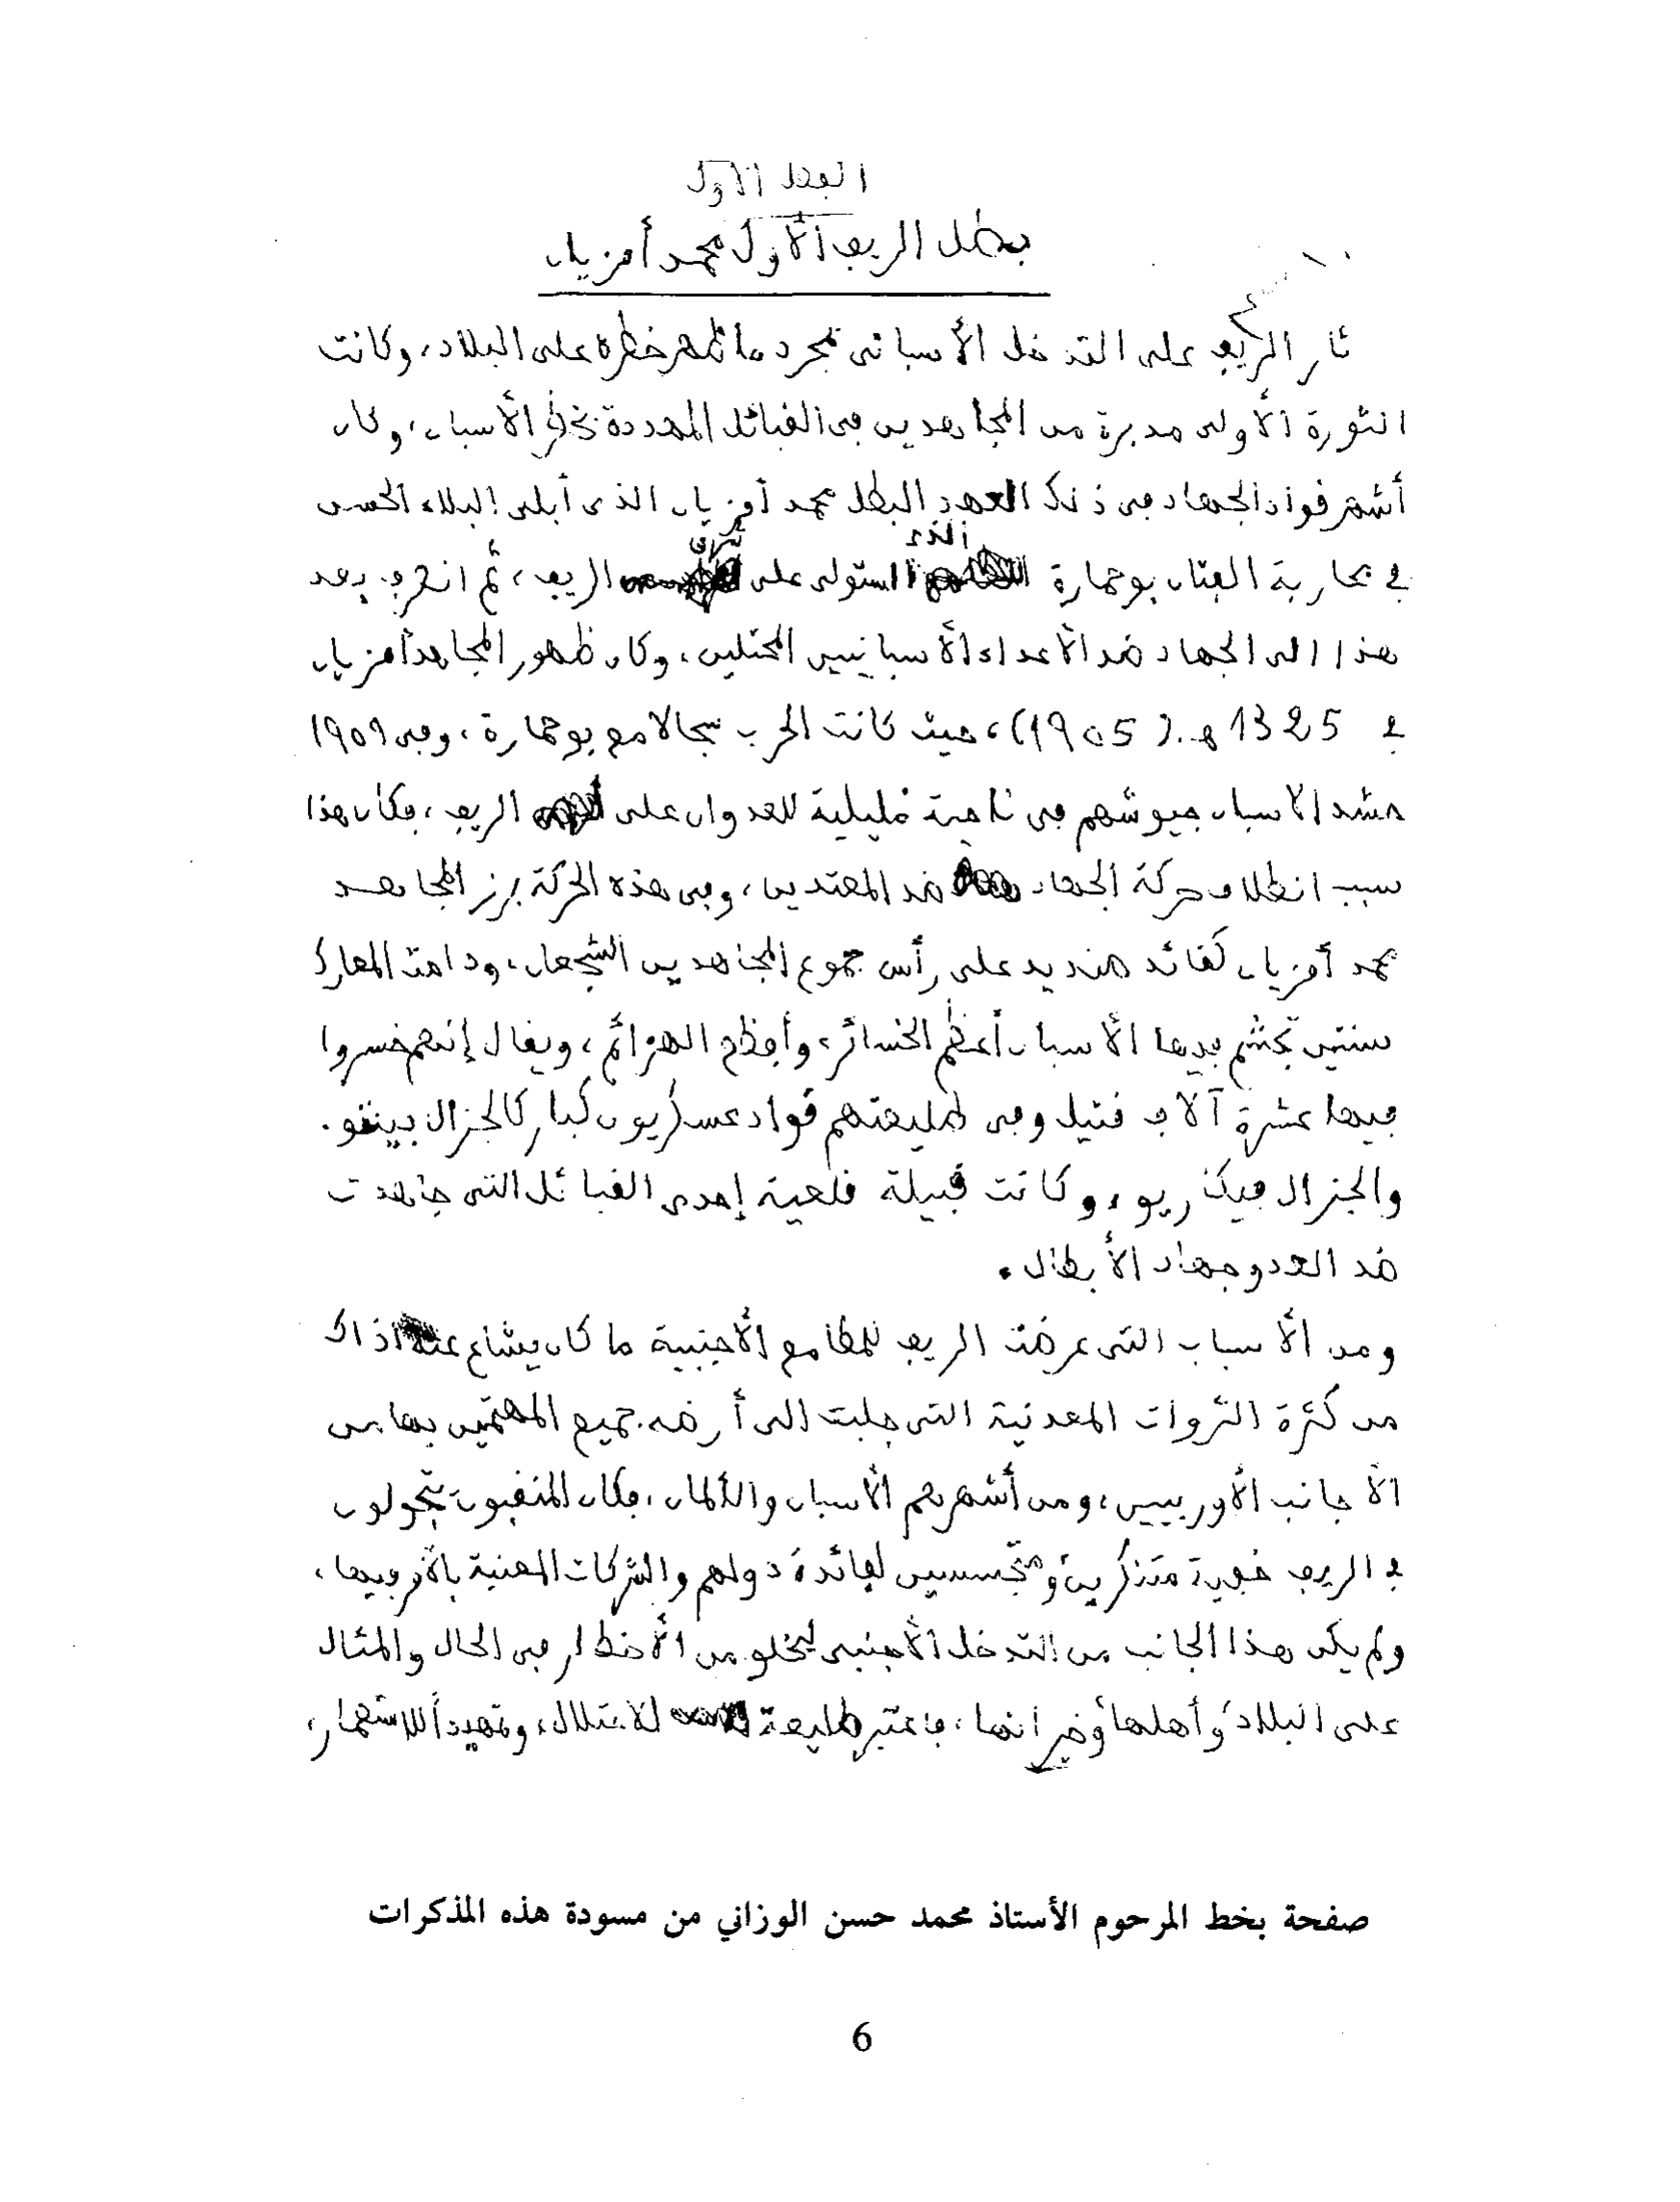 الفصل الأول
بطل الريف الأول محمد أمزيان
ثار الريف على التدخل الأسباني بمجرد ما ظهر خطره على البلاد، وكانت
الثورة الأولى مدبرة من المجاهدين في القبائل المهددة بخطر الأسبان، وكان
أشهر قواد الجهاد في ذلك العهد البطل محمد أمزيان الذي أبلى البلاء الحسن
في محاربة الفتان بوحمارة الذي استولى على شرقي الريف، ثم انصرف بعد
هذا الى الجهاد ضد الأعداء الأسبانيين المحتلين، وكان ظهور المجاهد أمزيان
في 1325 هـ. (1905)، حيث كانت الحرب سجالا مع بوحمارة، وفي 1909
حشد الاسبان جيوشهم في ناحية مليلية للعدوان على الريف، فكان هذا
سبب انطلاق حركة الجهاد ضد المعتدين، وفي هذه الحركة برز المجاهد
محمد أمزيان كقائد صنديد على رأس جموع المجاهدين الشجعان، ودامت المعارك
سنتين تجشم فيها الأسبان أعظم الخسائر، وأفظع الهزائم، ويقال إنهم خسروا
فيها عشرة آلاف قتيل وفي طليعتهم قواد عسكريون كبار كالجنرال بينتو.
والجنرال فيكاريو، وكانت قبيلة قلعية إحدى القبائل التي جاهدت
ضد العدو جهاد الأبطال.
ومن الأسباب التي عرضت الريف للمطامع الأجنبية ما كان يشاع عنه اذاك
من كثرة الثروات المعدنية التي جلبت الى أرضه جميع المهتمين بها من
الأجانب الأوربيين، ومن أشهرهم الأسبان والألمان، فكان المنقبون يتجولون
في الريف خفية متنكرين ومتجسسين لفائدة دولهم والشركات المعنية بالأمر فيها،
ولم يكن هذا الجانب من التدخل الأجنبي ليخلو من الأخطار في الحال والمئال
على البلاد وأهلها وخيراتها، فاعتبر طليعة للاحتلال، وتمهيدا للاستعمار،
صفحة بخط المرحوم الأستاذ محمد حسن الوزاني من مسودة هذه المذكرات
6